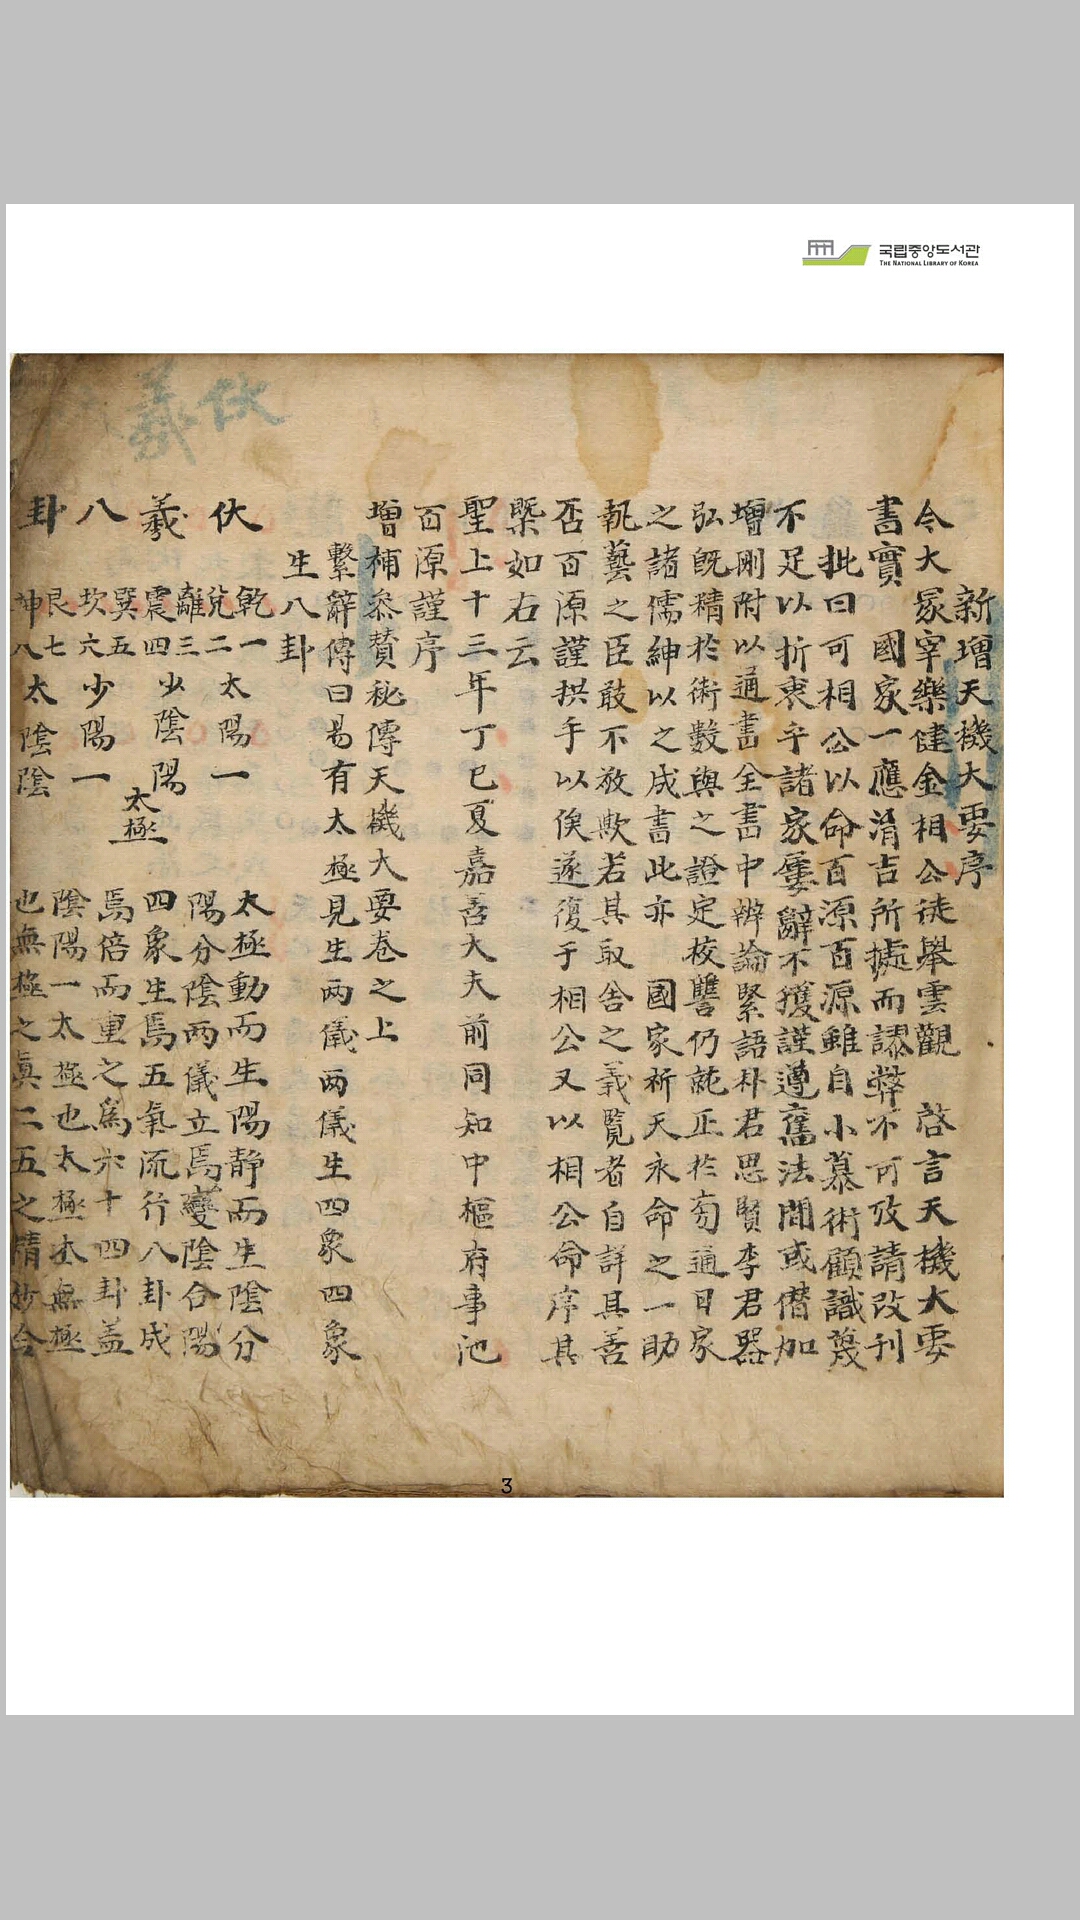 국립중앙도서관
THE NATIONAL LIBRARY OF KOREA
伏羲
新增天機大要序
今大冢宰樂健金相公徒舉雲觀 啓言天機大要
書實 國家一應涓吉所據而謬弊不可攷請改刊
批曰可相公以命百源百源雖自小慕術顧識蔑
不足以折衷乎諸家屢辭不獲謹遵舊法間或僭加
增刪附以通書全書中辨論緊語朴君思賢李君器
弘旣精於術數與之證定校讐仍就正於旁通日家
之諸儒紳以之成書此亦 國家祈天永命之一助
執藝之臣敢不敬歟若其取舍之義覽者自詳其善
否百源謹拱手以俟遂復于相公又以相公命序其
槩如右云
聖上十三年丁巳夏嘉善大夫前同知中樞府事池
百源謹序
增補叅贊秘傳天機大要卷之上
繫辭傳曰易有太極見生两儀两儀生四象四象
生八卦
伏羲八卦
乾一
兌二
離三
震四
巽五
坎六
艮七
坤八
太陽一
少陰
少陽一
太陰
陽
陰
太極
太極動而生陽静而生陰分
陽分陰两儀立焉變陰合陽
四象生焉五氣流行八卦成
焉倍而重之爲六十四卦盖
陰陽一太極也太極本無極
也無極之真二五之精妙合
3